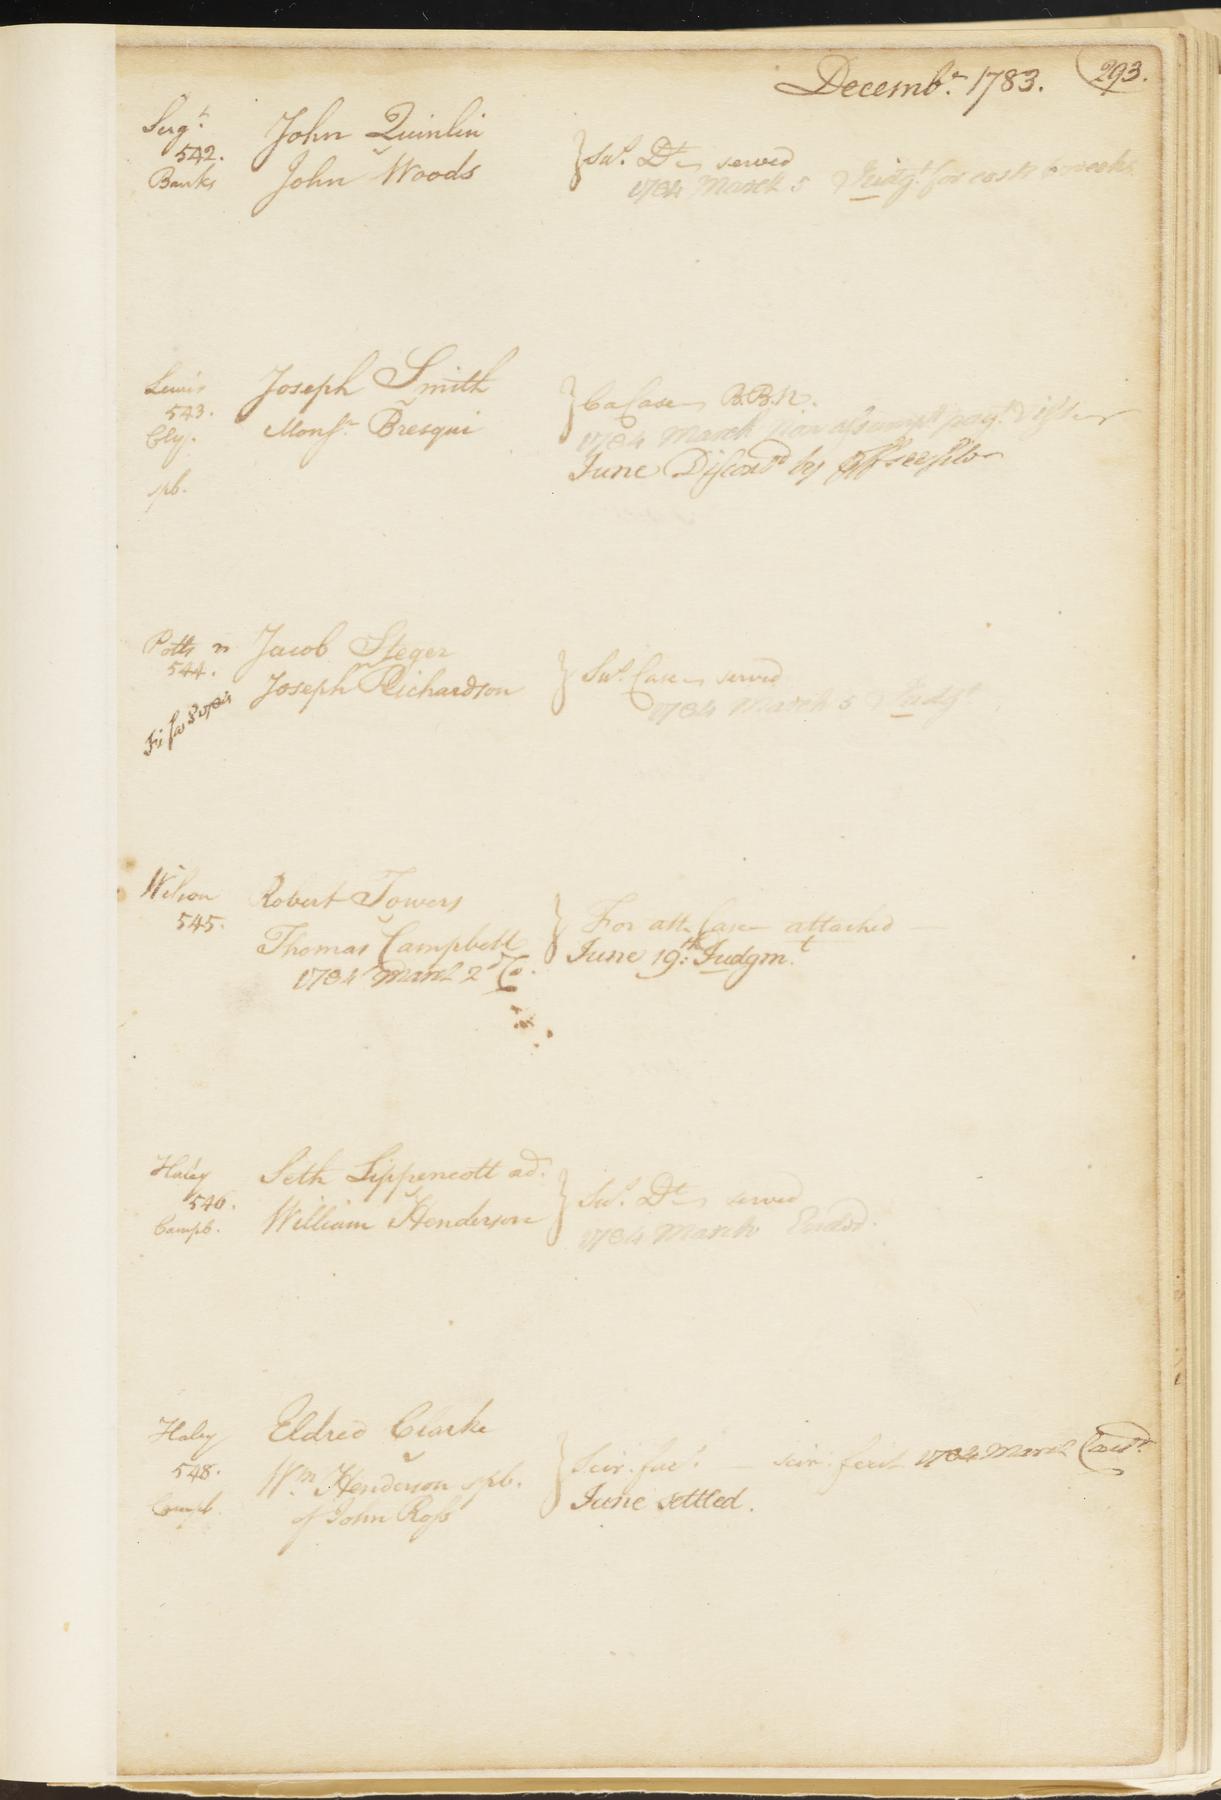 Decemb.r 1783.
293.
Serg.t
542.
Banks
John Quinlin
v
John Woods
} Su.s Dt served
1784 March 5 Judg.t for costs 6 weeks
Lewis
543.
Cly.
spb.
Joseph Smith
v
Mons.r Bresqui
} Ca Case B.B.N.
1784 March non assumpt pay.t & issue
June Discont.d by
Potts n
544.
Fi fa
Jacob Steger
v
Joseph Richardson
} Su.s Case served
1784 March 5 Judg.t
Wilson
545.
Robert Towers
v
Thomas Campbell
1784 March 2.d
} For att. Case attached
June 19:th Judgm.t
Haley
546.
Campb.
Seth Lippencott ad.
v
William Henderson
} Su.s Dt served
1784 March Ended.
Haley
548.
Campb.
Eldred Clarke
v
W.m Henderson spb.
of John Ross
} Scir. fac.s — scir. feci 1784 March
June settled.